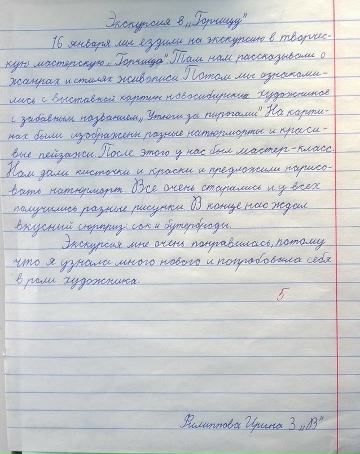 Экскурсия в „Горницу"
16 января мы ездили на экскурсию в творчес-
кую мастерскую „Горница". Там нам рассказывали о
жанрах и стилях живописи. Потом мы ознакоми-
лись с выставкой картин новосибирских художников
с забавным названием „Утюги за пирогами". На карти-
нах были изображены разные натюрморты и краси-
вые пейзажи. После этого у нас был мастер-класс.
Нам дали кисточки и краски и предложили нарисо-
вать натюрморт. Все очень старались и у всех
получились разные рисунки. В конце нас ждал
вкусный сюрприз: сок и бутерброды.
Экскурсия мне очень понравилась, потому
что я узнала много нового и попробовала себя
в роли художника.
5
Филиппова Ирина 3 „В"